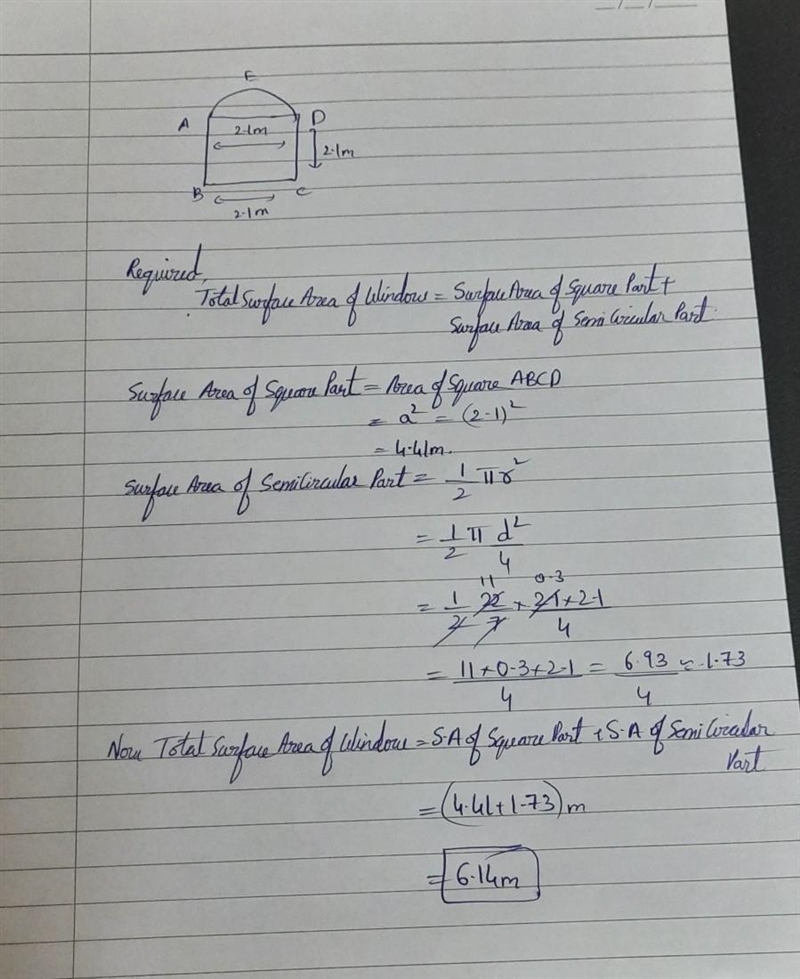 _/_/__
E
A
D
2.1m
2.1m
B
C
2.1m
Required,
Total Surface Area of Window = Surface Area of Square Part +
Surface Area of Semi Circular Part
Surface Area of Square Part = Area of Square ABCD
= a² = (2.1)²
= 4.41m.
Surface Area of SemiCircular Part = 1/2 πr²
= 1/2 π d²/4
11 0.3
= 1/2 22/7 × 2.1×2.1/4
= 11×0.3×2.1/4 = 6.93/4 ≈ 1.73
Now Total Surface Area of Window = S.A of Square Part + S.A of Semi Circular
Part
= (4.41+1.73)m
= 6.14m